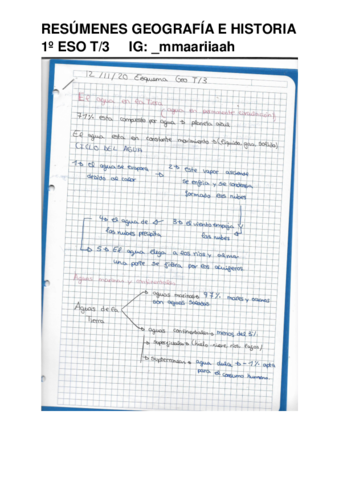 RESÚMENES GEOGRAFÍA E HISTORIA
1º ESO T/3 IG: _mmaariiaah
12/11/20 Esquema Geo T/3
El agua en la Tierra
71% esta compuesto por agua planeta azul
El agua esta en constante movimiento (liquida, gas, solido)
CICLO DEL AGUA
1 El agua se evapora 2 Este vapor asciende
debido al calor se enfria y se condensa
formando las nubes
4 El agua de 3 El viento empuja
las nubes precipita las nubes
5 El agua llega a los rios y
una parte se filtra por los acuiferos
Aguas marinas y
aguas marinas 97% mares y oceanos
son aguas saladas
Aguas de la
tierra
aguas continentales, menos del 3%
superficiales (hielo, nieve, rios, lagos)
subterraneas agua dulce 1% apta
para el consumo humano